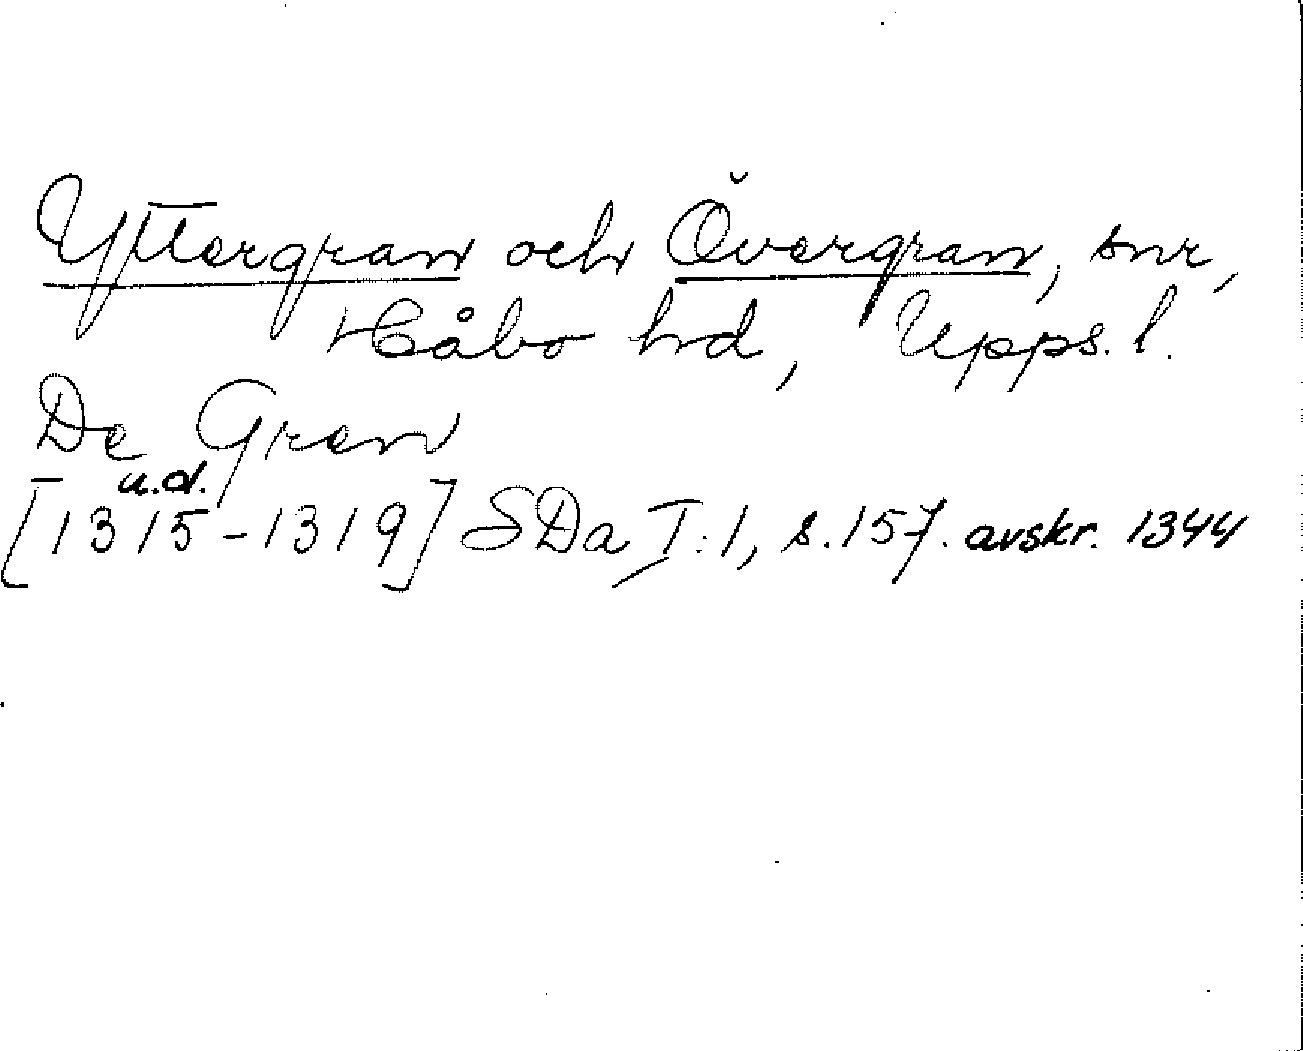 Yttergran och Övergran, snr,
Håbo hd, Upps. l.
De Gren
u.d.
[1315-1319] SDa I:1, s. 157. avskr. 1344